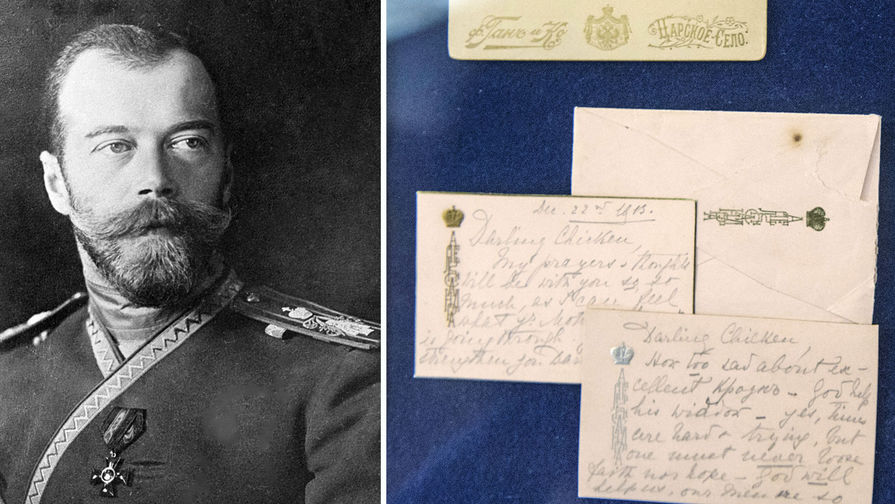 Ф. Ганъ и Ко
Царское-Село.
Dec. 22nd 1913.
Darling Chicken,
My prayers & thoughts
will be with you so so
much, as I can feel
what yr. Mot
is going through
strengthen you. Dar
Darling Chicken,
How too sad about ex-
cellent
God help
his widow – yes, times
are hard & trying, but
one must never loose
faith nor hope – God will
help us, our men